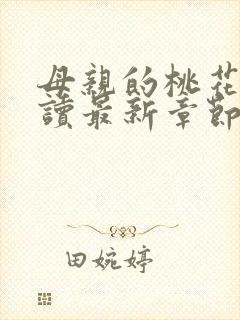 母親的桃花
讀最新章節
田婉婷